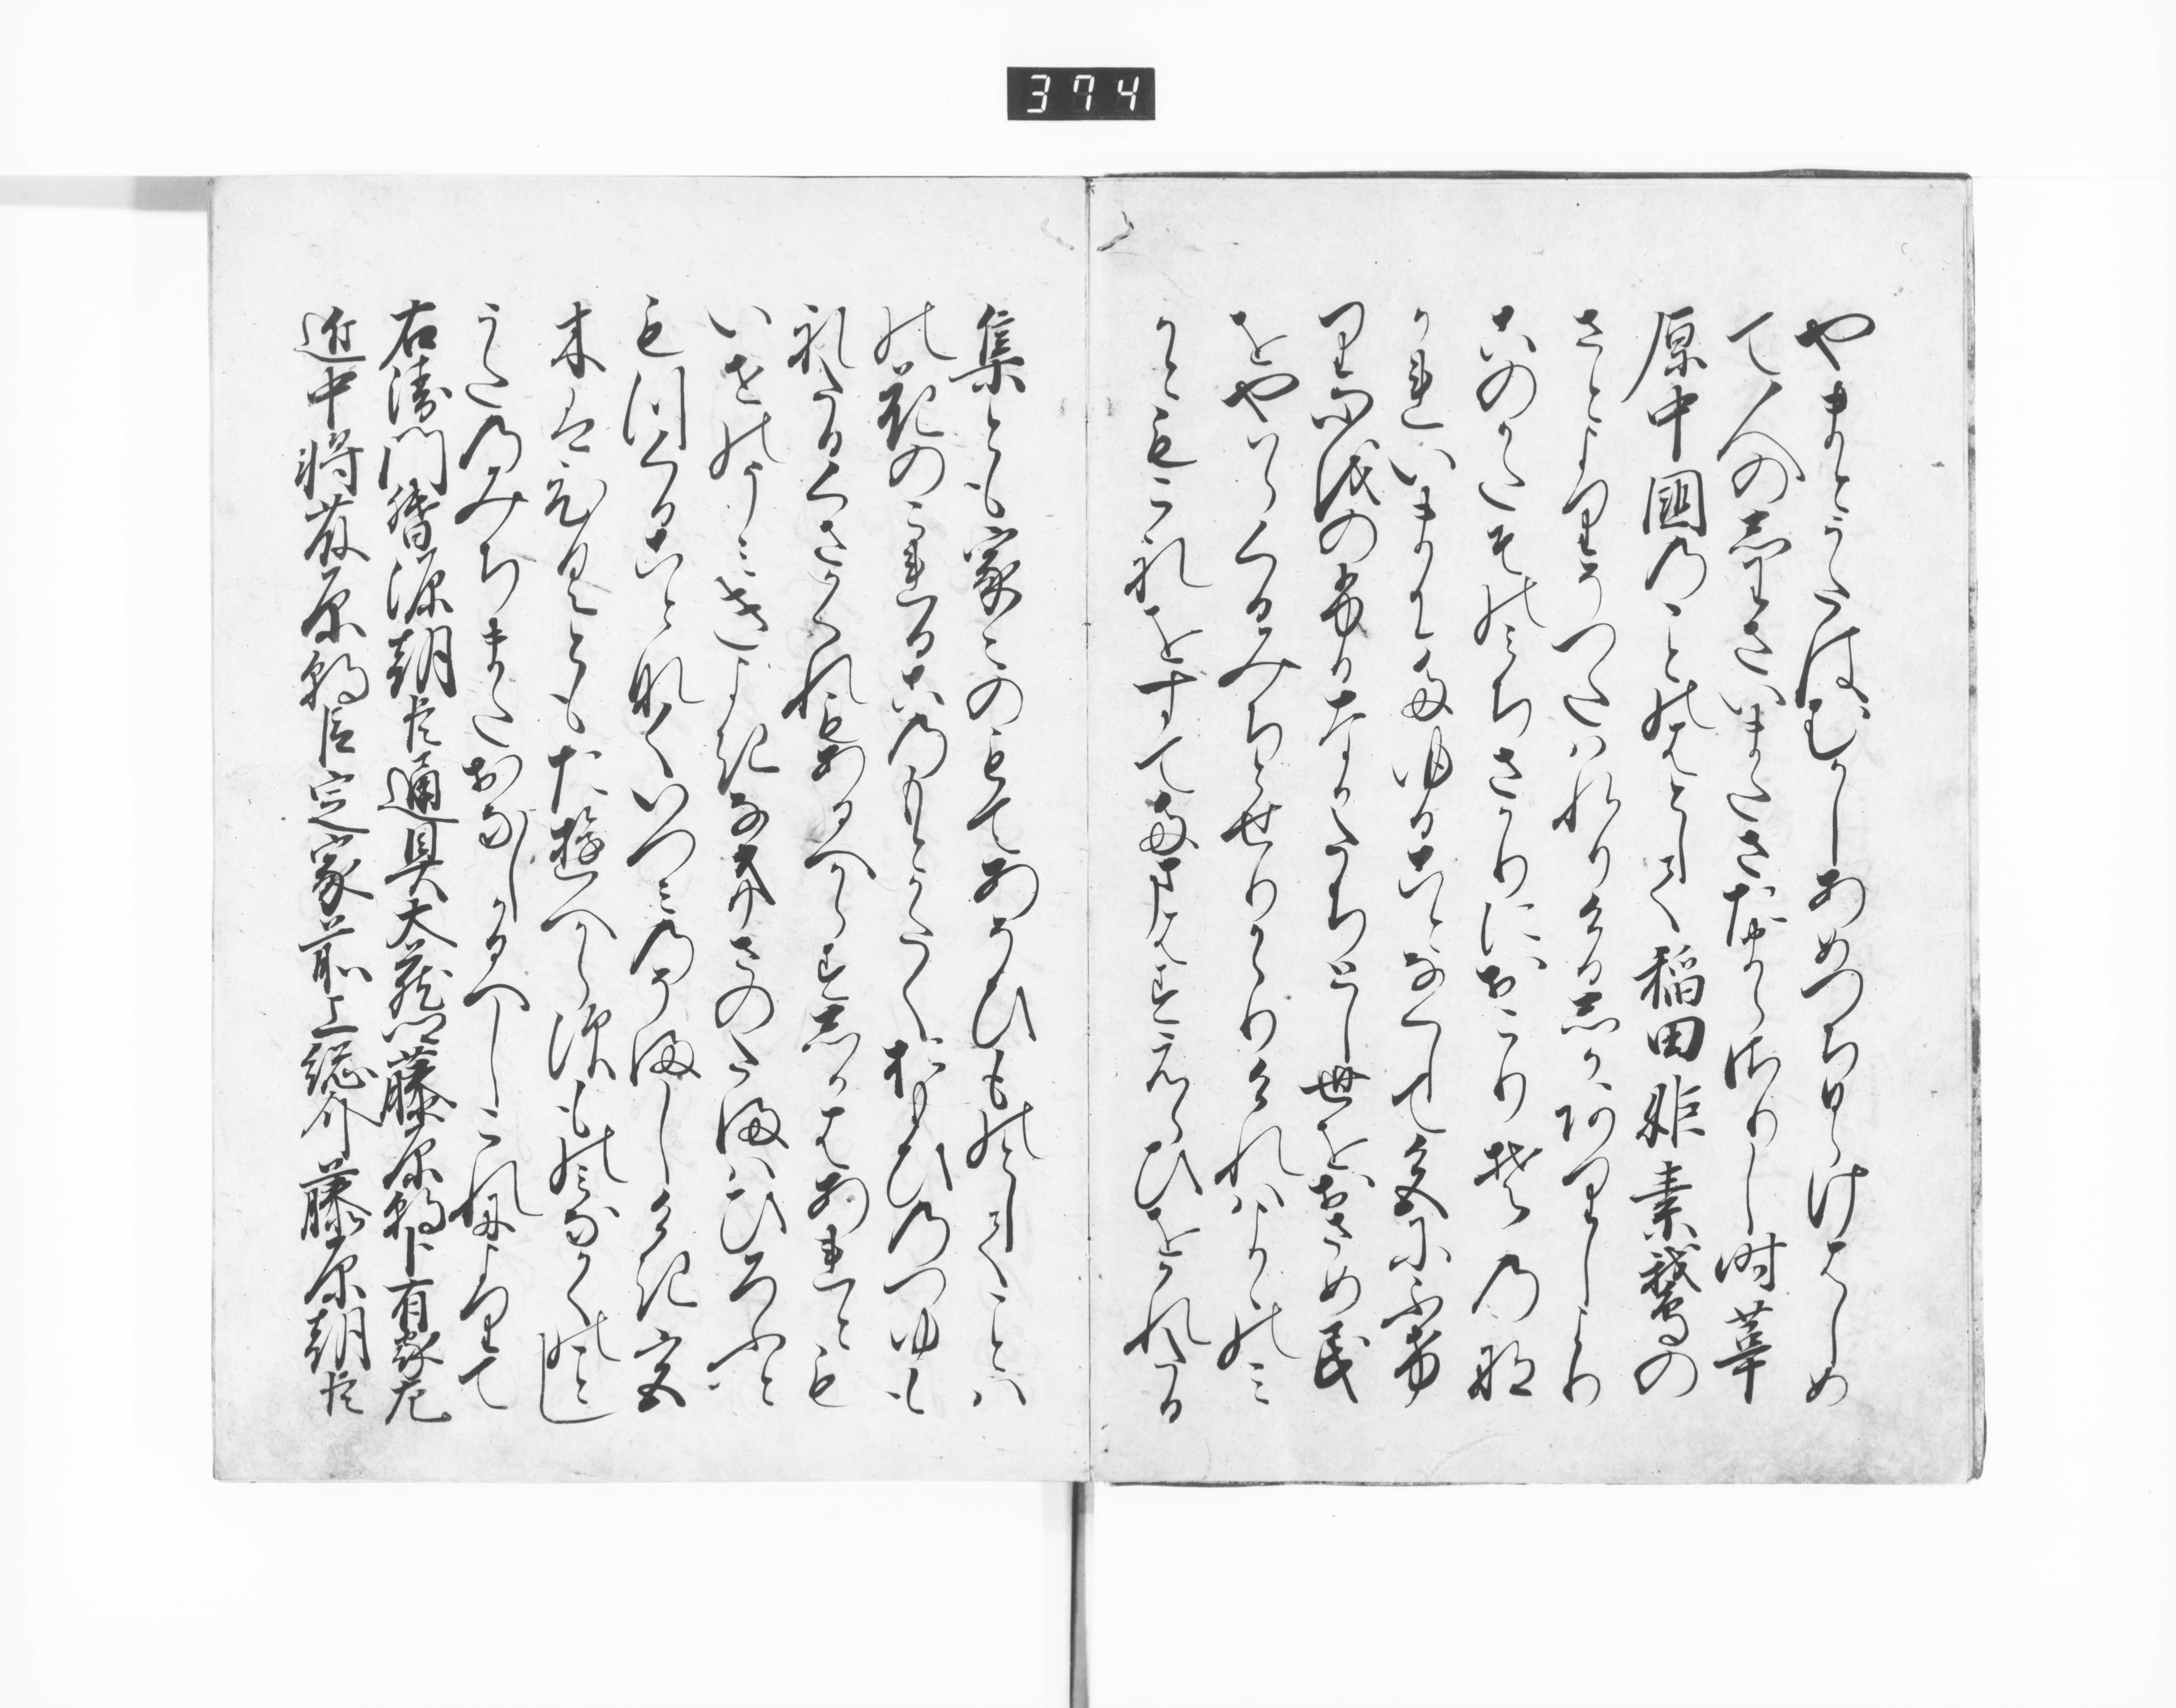 374
やまとうたはむかしあめつちひらけはしめ
て人のしわさいまたさたまらさりし時葦
原中國のことのはとして稲田姫素鵞の
さとよりそつたはれりけるしかありしより
このかたそのみちさかりにおこりそのな
かれいまにたゆることなくして色にふけ
り心をのふるなかたちとし世をおさめ民
をやはらくるみちとせりかゝりけれはよゝのみ
かともこれをすてたまはすえらひをかれたる
集とも家ゝのもてあそひものとしてことは
の花のこれるこのもとかたくおもひのつゆも
れたるくさかくれもあるへからすしかはあれとも
いせのうみきよきなきさのたまはひろふと
もつくることなくいつみのそましけき宮
木はひくともたゆへからすものみなかくのことし
うたのみちまたおなしかるへしこれによりて
右衛門督源朝臣通具大蔵卿藤原朝臣有家左
近中将藤原朝臣定家前上総介藤原朝臣